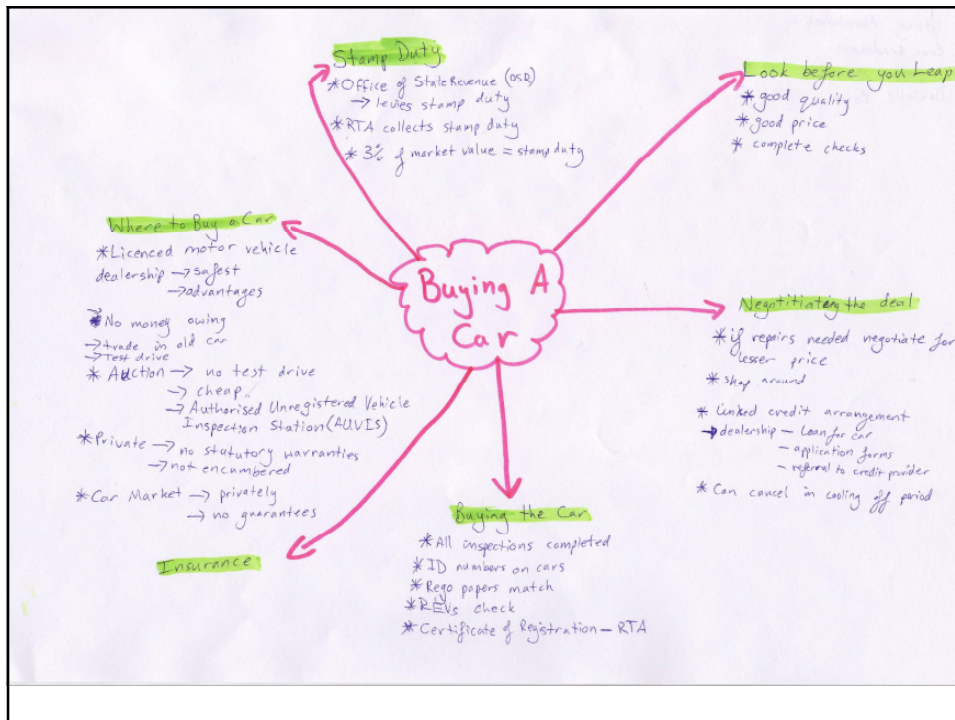 Stamp Duty
*Office of State Revenue (OSR)
→ levies stamp duty
*RTA collects stamp duty
*3% of market value = stamp duty
Look before you Leap
*good quality
*good price
*complete checks
Where to Buy a Car
*Licenced motor vehicle
dealership → safest
→ advantages
*No money owing
→ trade in old car
→ Test drive
*Auction → no test drive
→ cheap..
→ Authorised Unregistered Vehicle
Inspection Station (AUVIS)
*Private → no statutory warranties
→ not encumbered
*Car Market → privately
→ no guarantees
Buying A
Car
Negotitiating the deal
*if repairs needed negotiate for
lesser price
*shop around
*Linked credit arrangement
→ dealership – Loan for car
– application forms
– referral to credit provider
*Can cancel in cooling off period
Insurance
Buying the Car
*All inspections completed
*ID numbers on cars
*Rego papers match
*REVs check
*Certificate of Registration – RTA